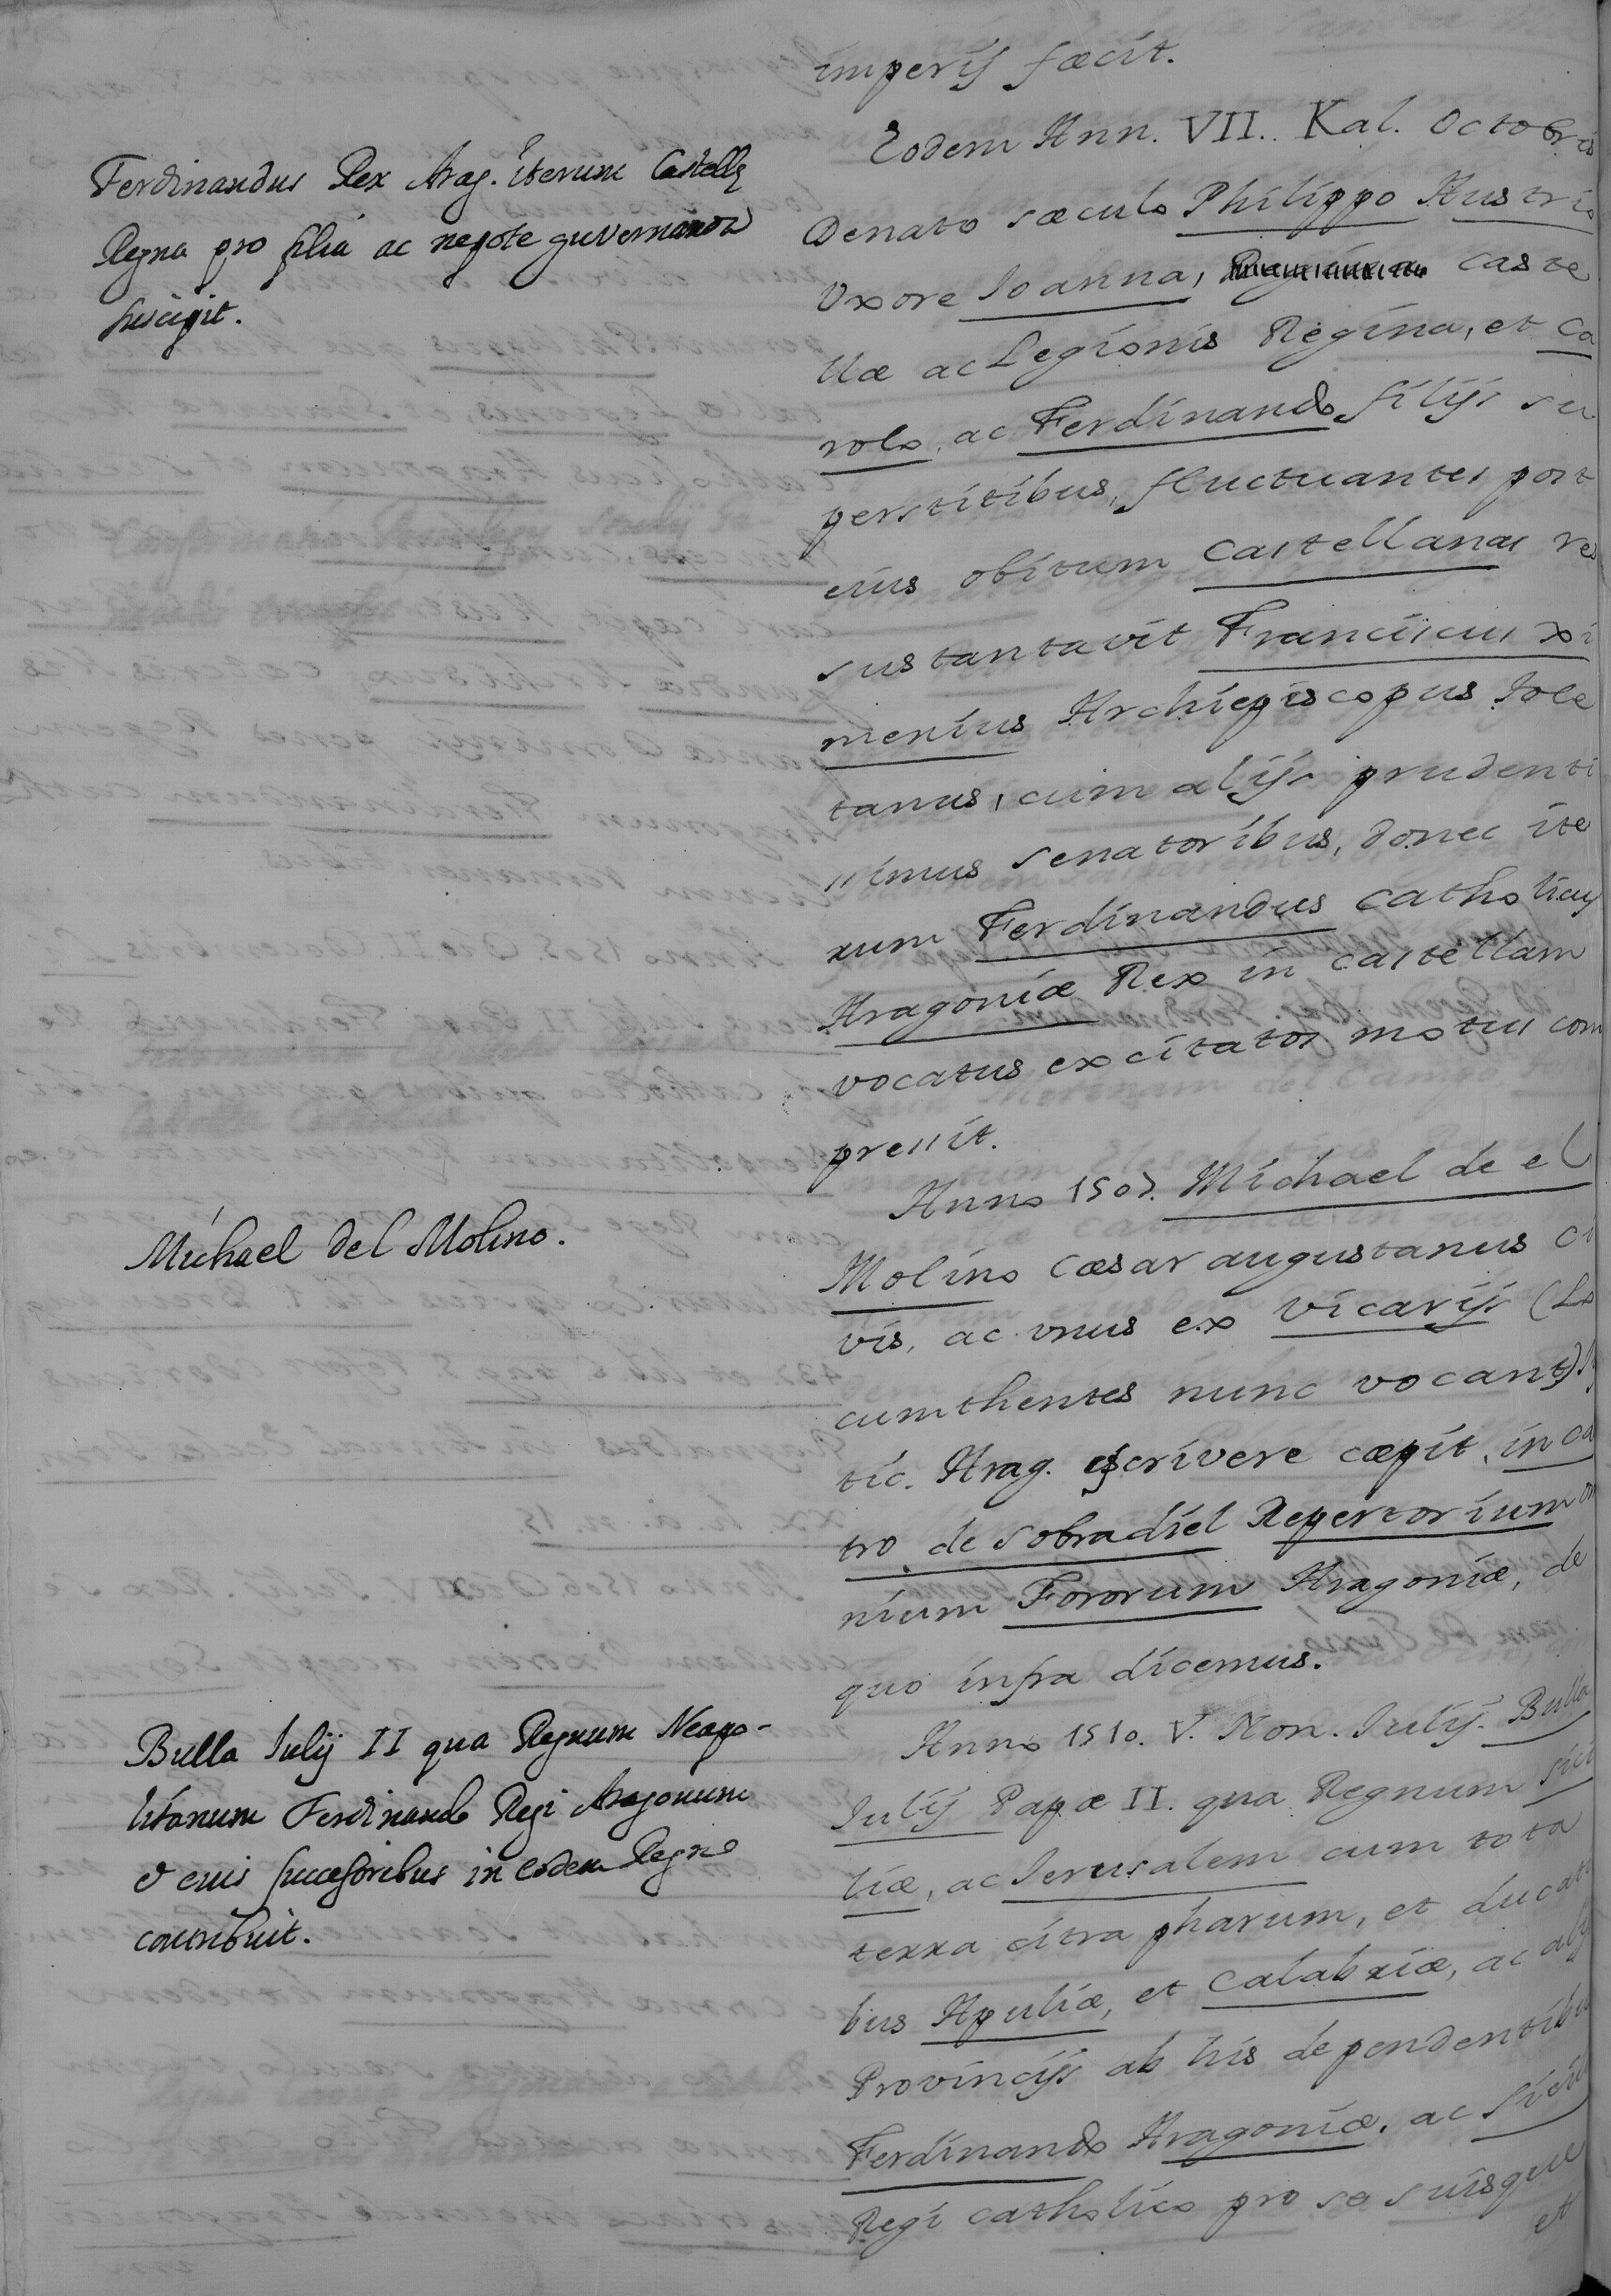 imperij fæcit.
Eodem Ann. VII. Kal. Octobris
Ferdinandus Rex Arag. iterum Castellę
Regna pro filia ac nepote guvernanda
suscipit.
Denato sæculo Philippo Austrio
Uxore Ioanna, caste
llæ ac Legionis Regina, et Ca
rolo, ac Ferdinando filijs su
perstitibus, fluctuantes post
eius obitum Castellanas res
sustantavit Franciscus Xi
menius Archiepiscopus Tole
tanus, cum alijs prudenti
ssimus senatoribus, donec ite
rum Ferdinandus Catholicus
Aragoniæ Rex in castellam
vocatus excitatos motus com
pressit.
Anno 1507. Michael de el
Michael del Molino.
Molino Cæsaraugustanus ci
vis, ac unus ex Vicarijs (Lo
cumthentes nunc vocant)
tic. Arag. escrivere cæpit, in ca
tro de Sobradiel Repertorium om
nium Fororum Aragoniæ, de
quo infra dicemus.
Anno 1510. V. Non. Iulij. Bulla
Bulla Iulij II qua Regnum Neapo-
litanum Ferdinando Regi Aragonum
& eius successoribus in eodem Regno
contribuit.
Iulij Papæ II. qua Regnum Sici
liæ, ac Ierusalem cum tota
terra citra pharum, et ducati
bus Apuliæ, et Calabriæ, ac alijs
Provincijs ab his dependentibus
Ferdinando Aragoniæ, ac Sicili
Regi catholico pro se suisque
et